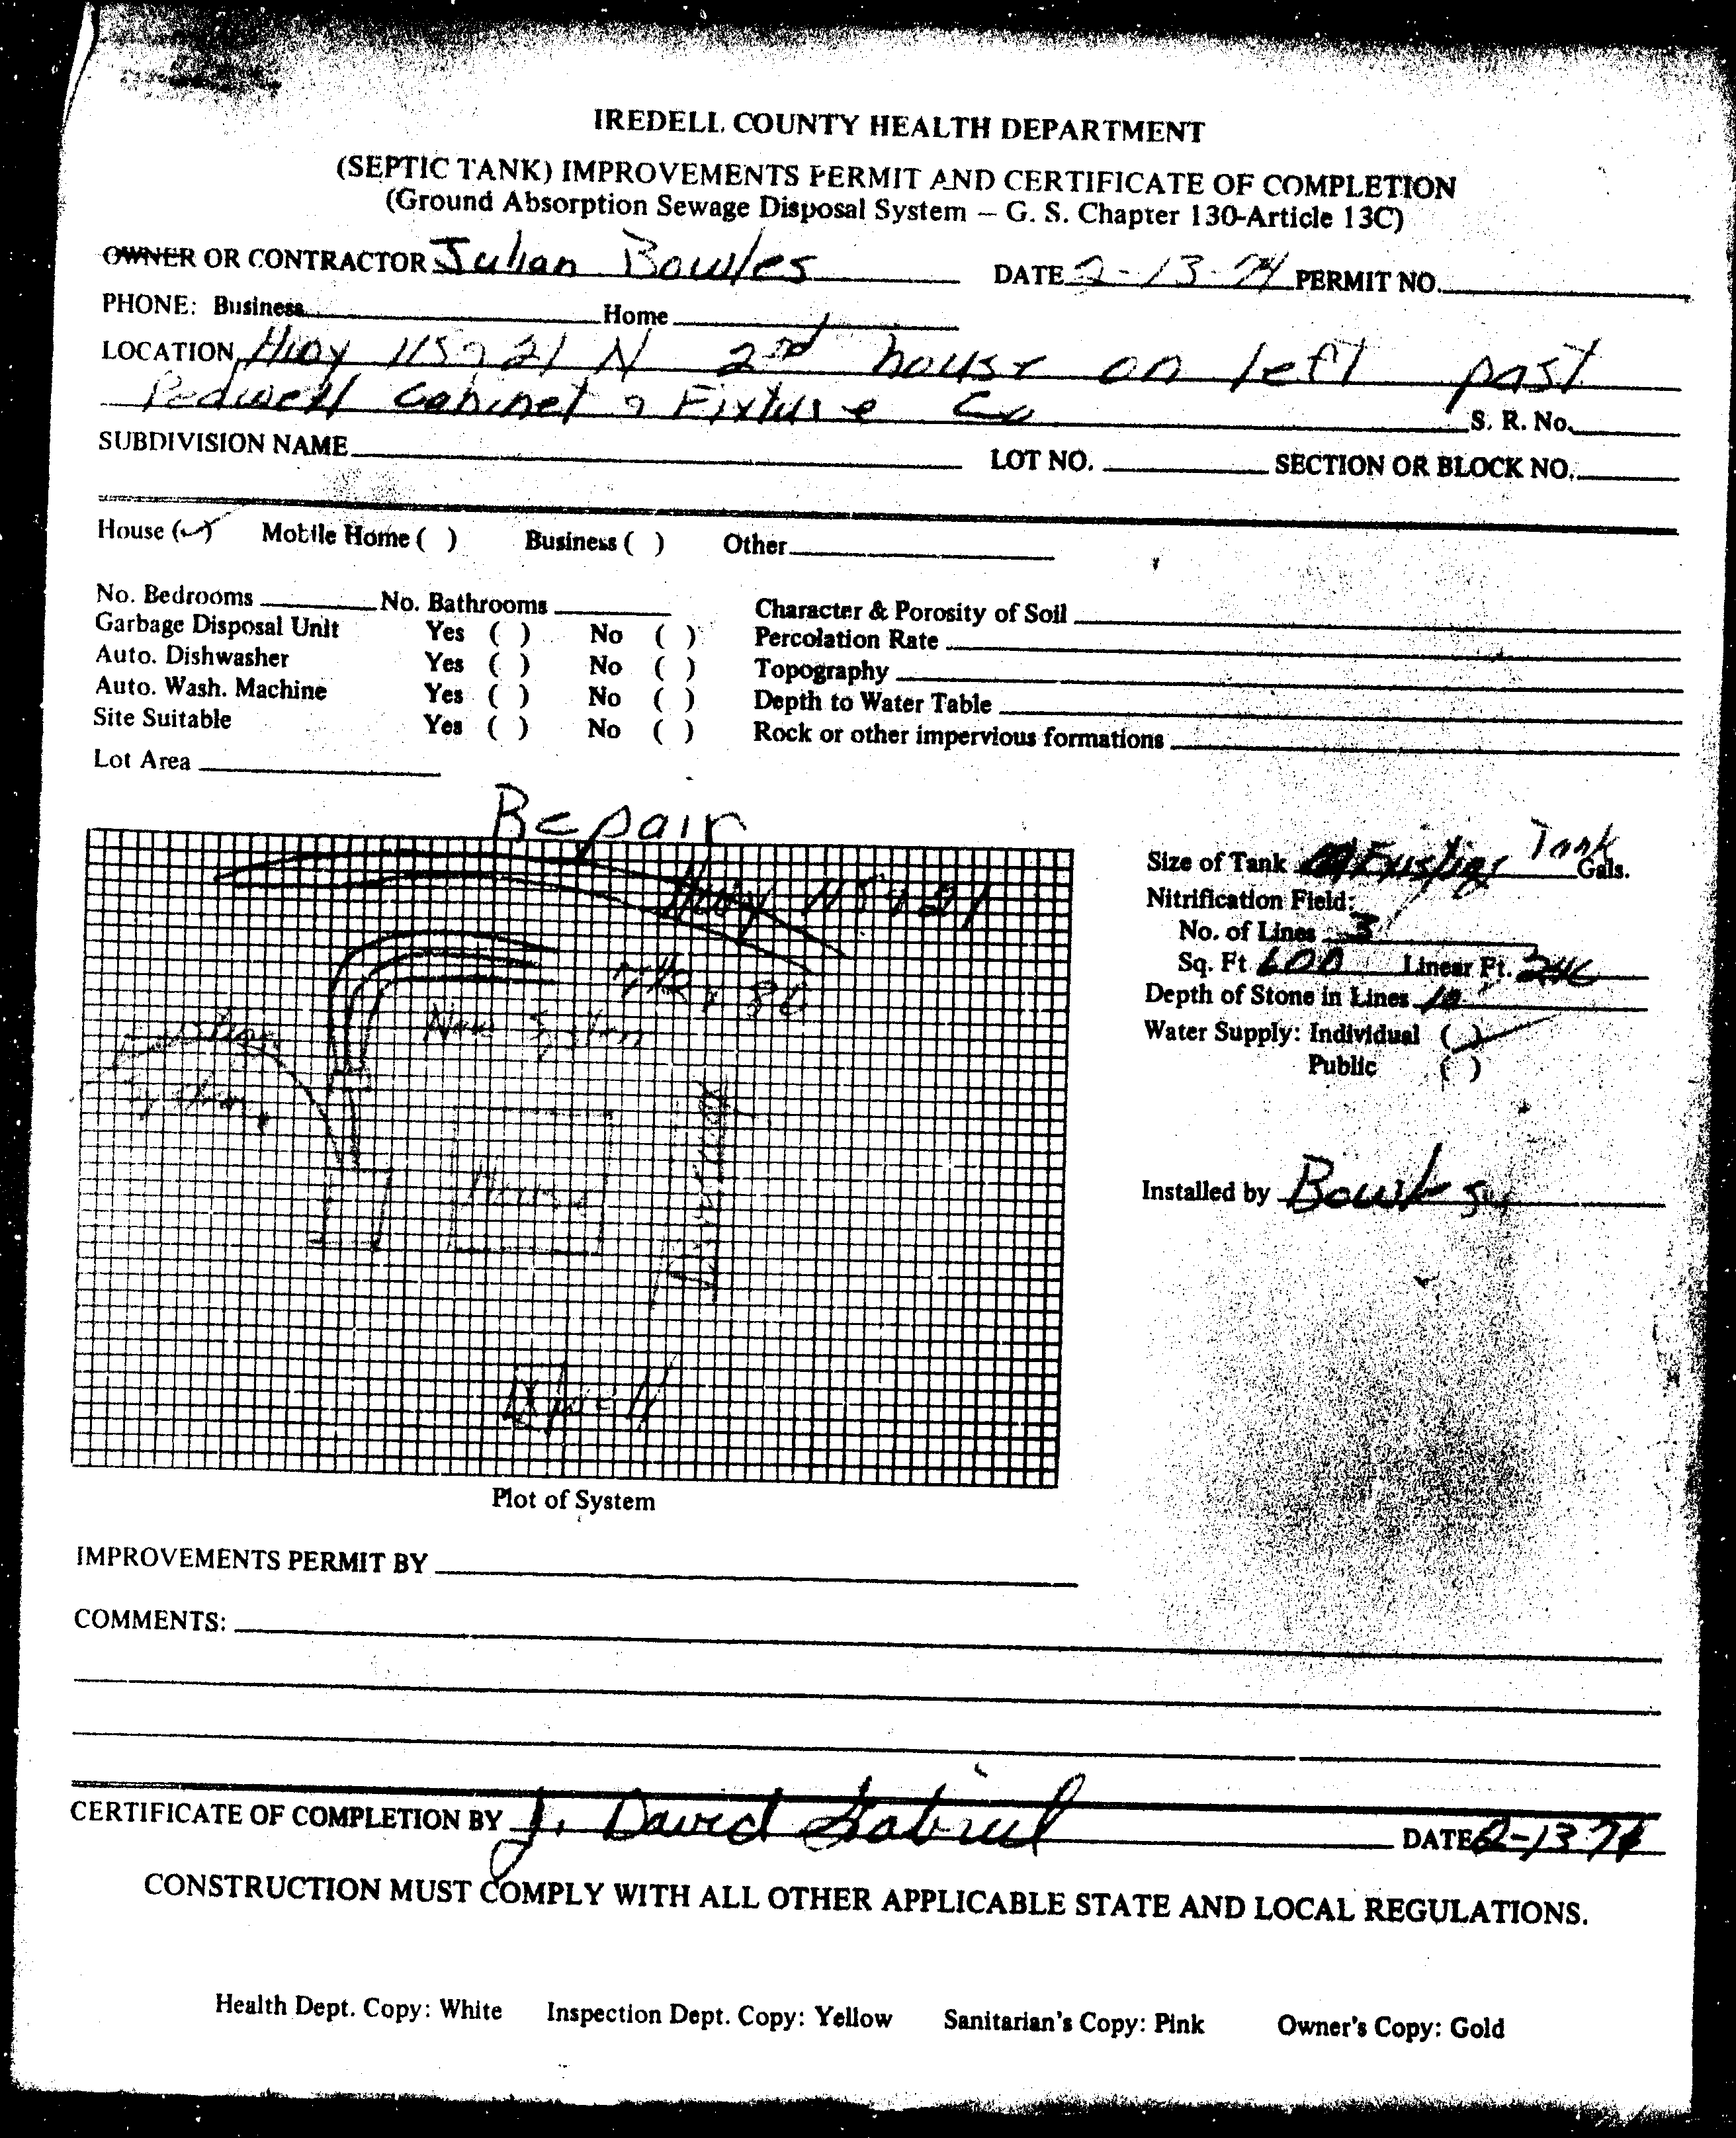 IREDELL COUNTY HEALTH DEPARTMENT
(SEPTIC TANK) IMPROVEMENTS PERMIT AND CERTIFICATE OF COMPLETION
(Ground Absorption Sewage Disposal System – G. S. Chapter 130-Article 13C)
OWNER OR CONTRACTOR Julian Bowles DATE 2-13-74 PERMIT NO.
PHONE: Business Home
LOCATION Hwy 115 & 21 N 2nd house on left past
Pedwell Cabinet & Fixture Co S. R. No.
SUBDIVISION NAME LOT NO. SECTION OR BLOCK NO.
House (✓) Mobile Home ( ) Business ( ) Other
No. Bedrooms No. Bathrooms Character & Porosity of Soil
Garbage Disposal Unit Yes ( ) No ( ) Percolation Rate
Auto. Dishwasher Yes ( ) No ( ) Topography
Auto. Wash. Machine Yes ( ) No ( ) Depth to Water Table
Site Suitable Yes ( ) No ( ) Rock or other impervious formations
Lot Area
Repair
Hwy 115 & 21
New System
Existing
System
House
Size of Tank Existing Tank Gals.
Nitrification Field:
No. of Lines 3
Sq. Ft. 600 Linear Ft.
Depth of Stone in Lines
Water Supply: Individual (✓)
Public ( )
Installed by
Plot of System
IMPROVEMENTS PERMIT BY
COMMENTS:
CERTIFICATE OF COMPLETION BY J. David Gabriel DATE 2-13-74
CONSTRUCTION MUST COMPLY WITH ALL OTHER APPLICABLE STATE AND LOCAL REGULATIONS.
Health Dept. Copy: White Inspection Dept. Copy: Yellow Sanitarian's Copy: Pink Owner's Copy: Gold